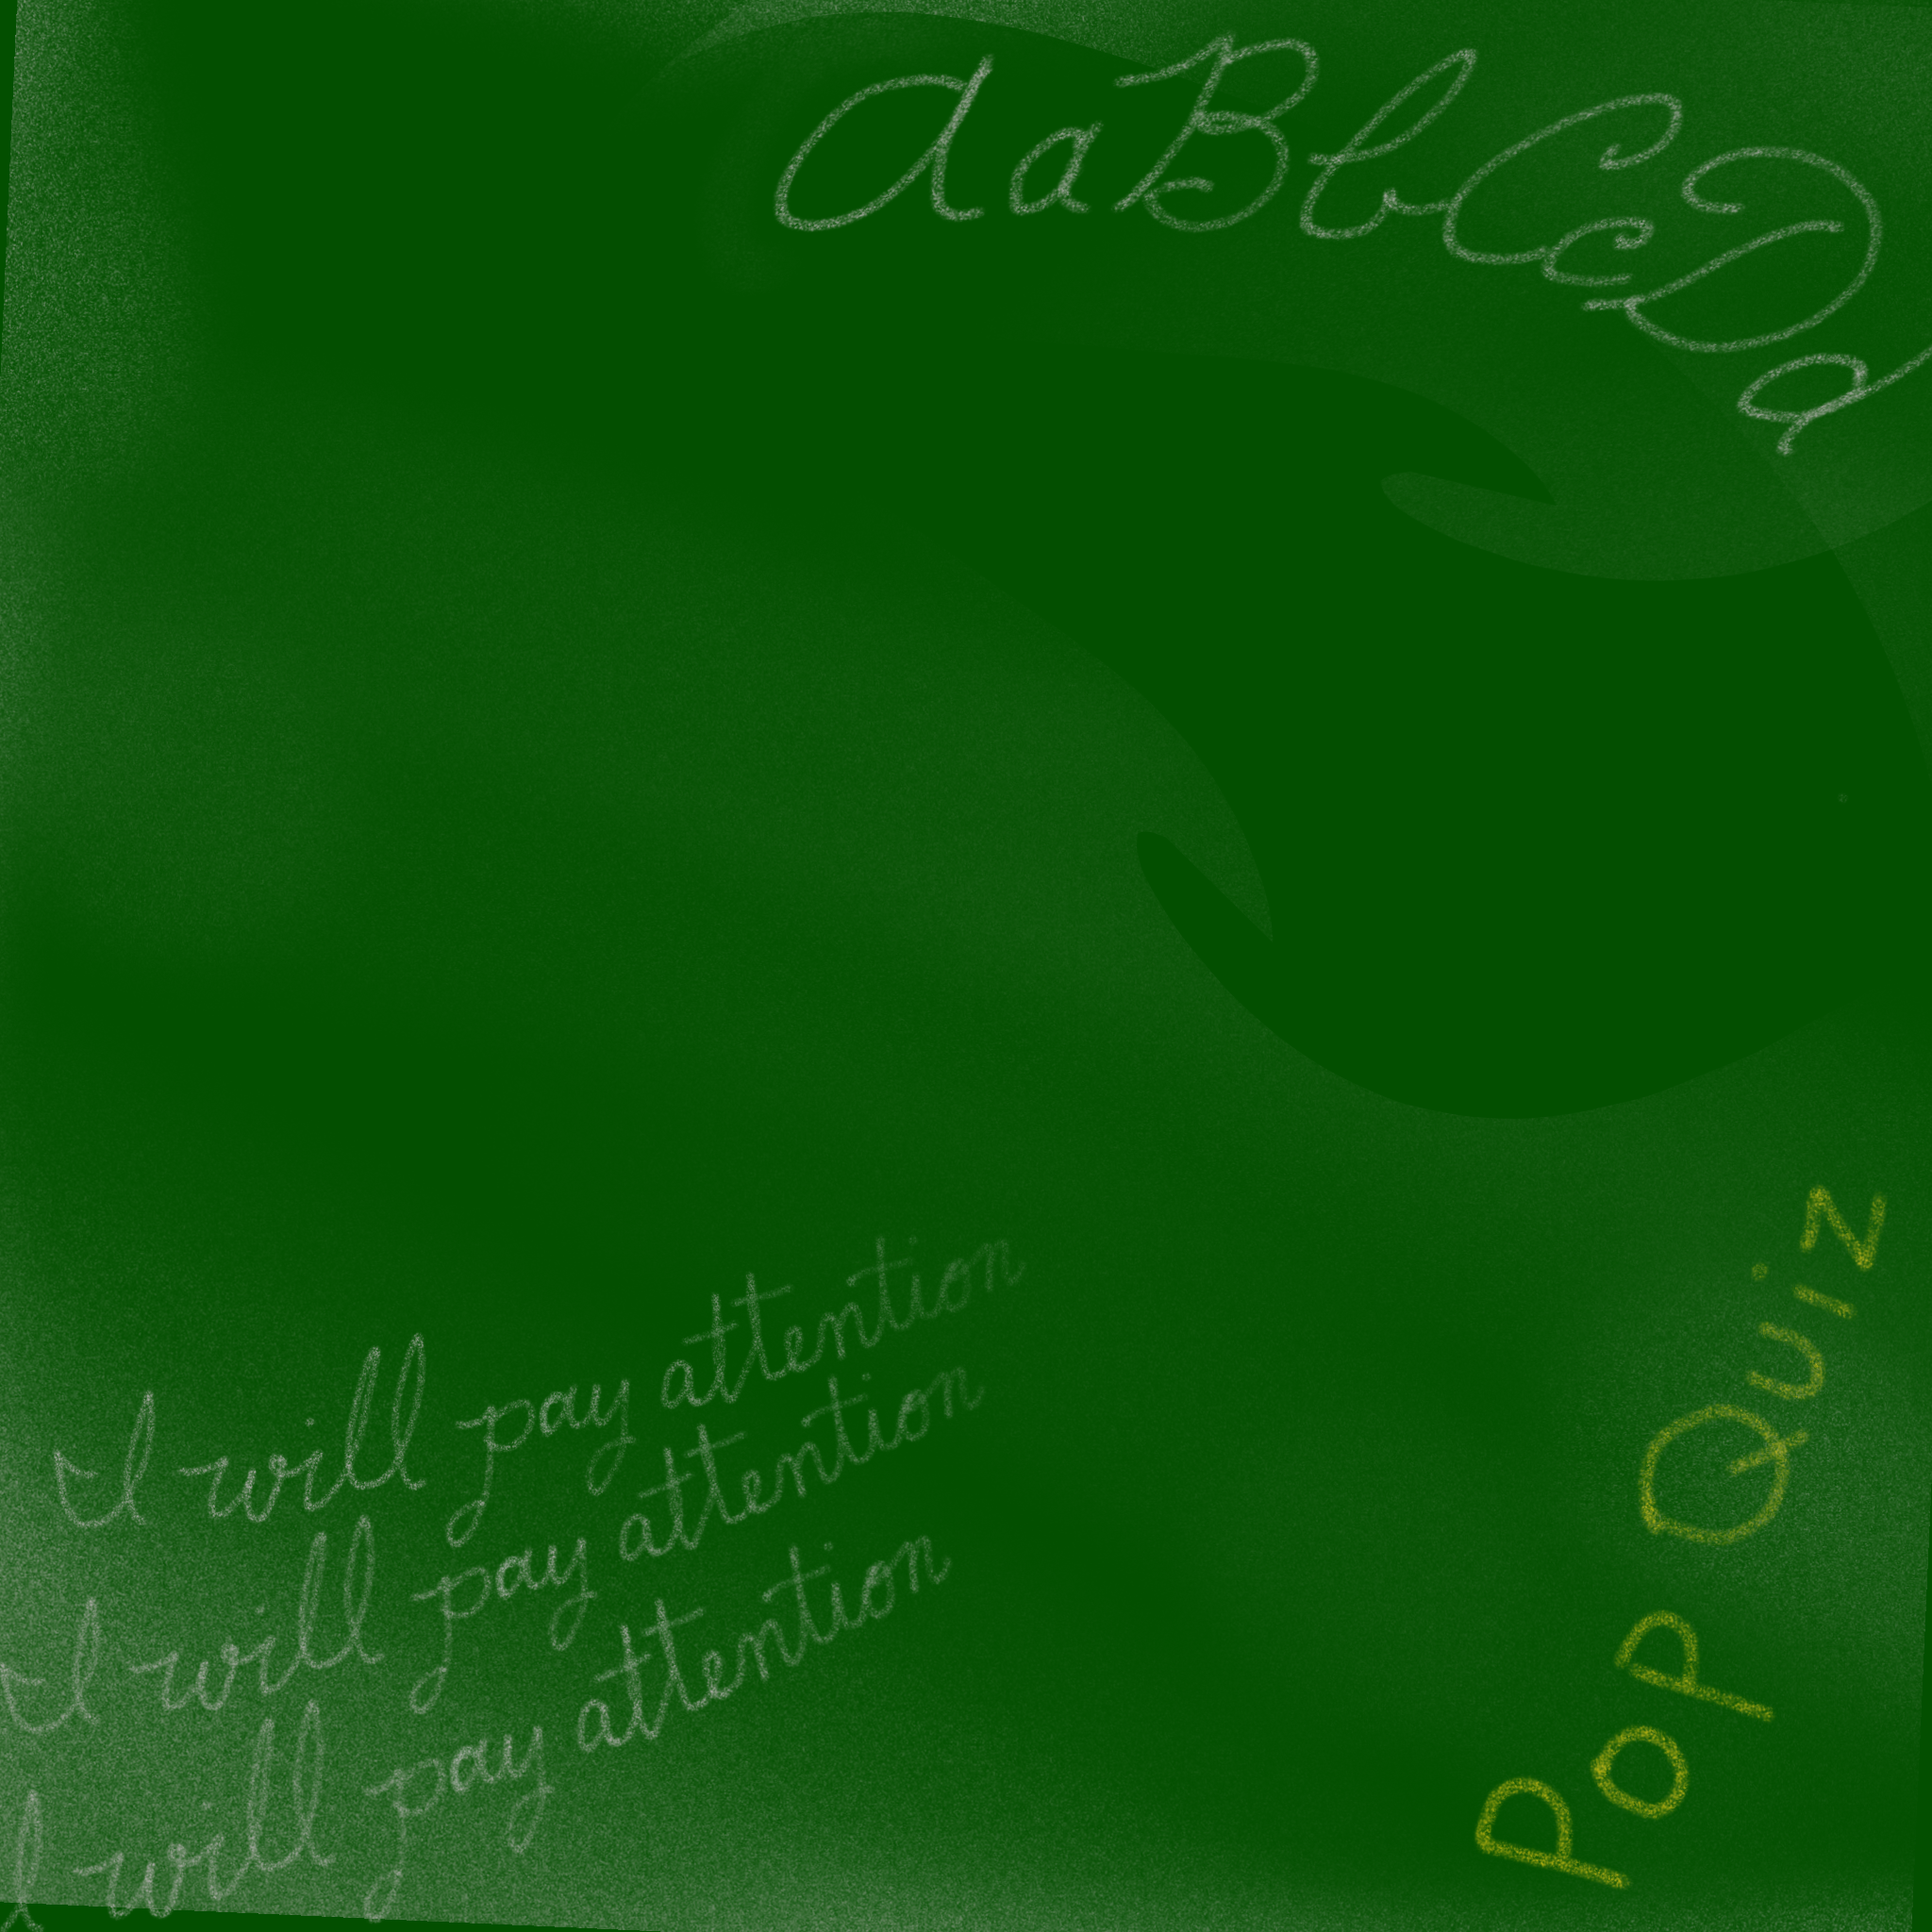 AaBbCcDd
I will pay attention
I will pay attention
I will pay attention
Pop Quiz